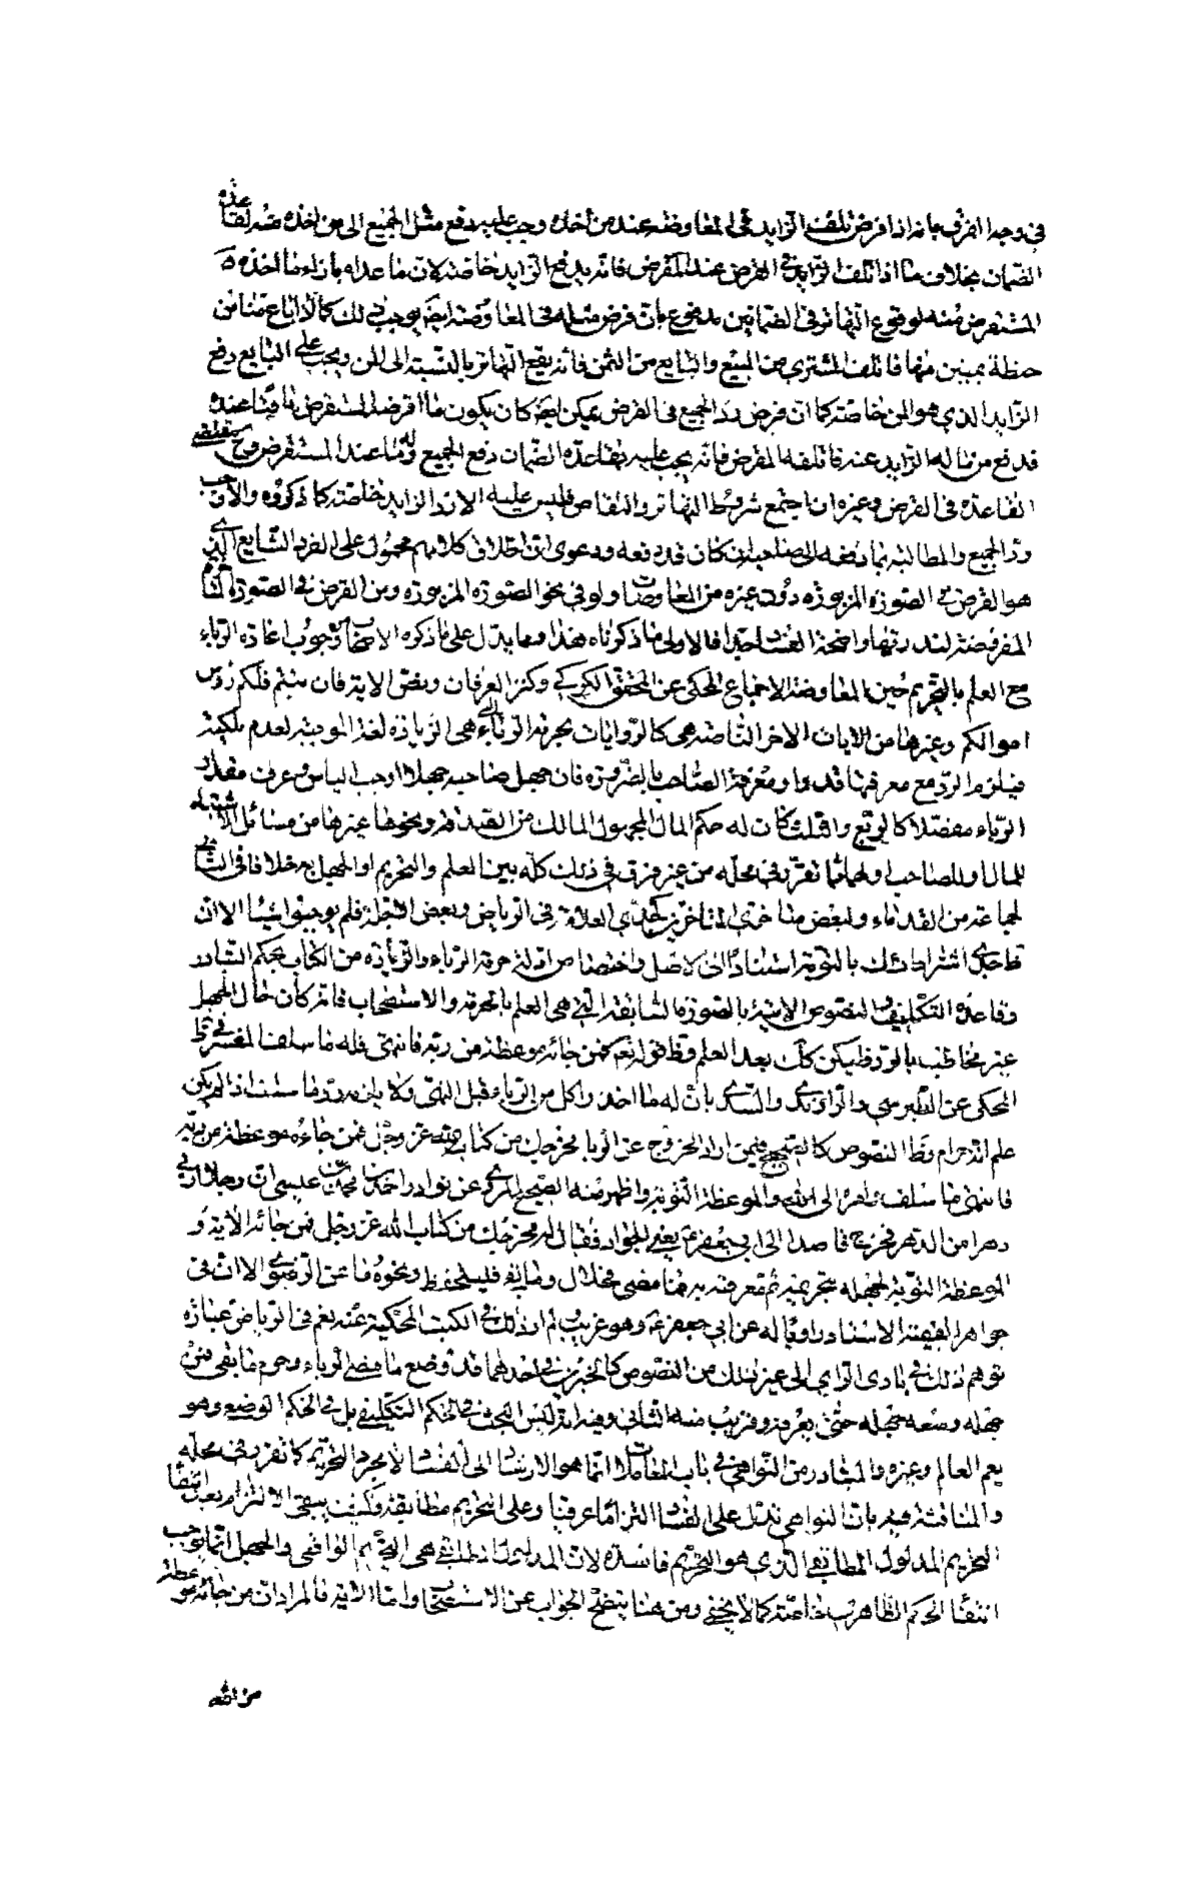 في وجه الفرق بانه اذا فرض تلف الزايد في المعاوضه عند من اخذه وجب عليه دفع مثل الجميع الى من اخذه منه لقاعدة
الضمان بخلاف ما اذا تلف الزايد في القرض عند المقرض فانه يدفع الزايد خاصة لان ما عداه بازاء ما اخذه
المستقرض منه لوقوع التهاتر في الضمانين مدفوع بان فرض مثله في المعاوضة ايضا يوجب ذلك كما اذا باع منا من
حنطة بمنين منها فاتلف المشتري من المبيع والبايع من الثمن فانه يقع التهاتر بالنسبة الى المن ويجب على البايع دفع
الزايد الذي هو المن خاصة كما ان فرض رد الجميع في القرض يمكن ايضا كان يكون ما اقرضه المستقرض باقيا عنده
قد دفع من ماله الزايد عنه فاتلفه المقرض فانه يجب عليه بقاعدة الضمان دفع الجميع وله ما عند المستقرض وح مقتضى
القاعدة في القرض وغيره ان اجتمع شروط التهاتر والتقاص فليس عليه الا رد الزايد خاصة كما ذكروه والا وجب
رد الجميع والمطالبة بما دفعه الى صاحبه ان كان قد دفعه ودعوى ان اطلاق كلامهم محمول على الفرد الشايع الذي
هو القرض في الصورة المزبورة دون غيره من المعاوضات ولو في نحو الصورة المزبورة ومن القرض في الصورة
المفروضة لندرتها واضحة الفساد جدا فالاولى ما ذكرناه هذا ومما يدل على ما ذكره الاصحاب من وجوب اعادة الرباء
مع العلم بالتحريم حين المعاوضة الاجماع المحكي عن المحقق الكركي وكنز العرفان ونص الاية فان تبتم فلكم رؤس
اموالكم وغيرها من الايات الاخر الناصة هي كالروايات بحرمة الرباء التي هي الزيادة لغة الموجبة لعدم ملكيته
فيلزم الرد مع معرفتها قدرا ومعرفة الصاحب بالضرورة فان جهل صاحبه جهلا اوجب الياس وعرف مقدار
الرباء مفصلا كالربع والثلث كان له حكم المال المجهول المالك من الصدقة ونحوها غيرها من مسائل الاشتباه
للمال او للصاحب او لهما مما تقرر في محله من غير فرق في ذلك كله بين العلم بالتحريم او الجهل به خلافا في الثاني
لجماعة من القدماء ولبعض متاخري المتاخرين كجدي العلامة في الرياض وبعض الاجلة فلم يوجبوا شيئا الا ان
ظاهر اشتراط ذلك بالتوبة استنادا الى الاصل واختصاص ادلة حرمة الرباء والزيادة من الكتاب بحكم التبادر
وقاعدة التكليف والنصوص الاتية بالصورة السابقة التي هي العلم بالحرمة والاستصحاب فانه كان حال الجهل
غير مخاطب بالرد فليكن كك بعد العلم وظ قوله تعالى فمن جائه موعظة من ربه فانتهى فله ما سلف المفسر في ظ
المحكي عن الطبرسي والراوندي والسدي بان له ما اخذ واكل من الرباء قبل النهي ولا يلزمه رد ما سلف اذا لم يكن
علم انه حرام وظ النصوص كالصحيح فيمن اراد الخروج عن الربا مخرجك من كتاب الله عز وجل فمن جاءه موعظة من ربه
فانتهى فله ما سلف وامره الى الله والموعظة التوبة واظهر منه الصحيح المروي عن نوادر احمد بن محمد بن عيسى ان رجلا اربى
دهرا من الدهر فخرج قاصدا الى ابي جعفر ع يعني الجواد فقال له مخرجك من كتاب الله عز وجل فمن جائه الاية و
الموعظة التوبة لجهله بتحريمه ثم معرفته به فما مضى فحلال وما بقي فليستحفظ ونحوه ما عن الرضوي الا ان في
جواهر الفقيه الاسناد راويا له عن ابي جعفر ع وهو غريب لم ار ذلك في الكتب المحكية عنه نعم في الرياض عبارة
توهم ذلك في بادى الراي الى غير ذلك من النصوص كالخبرين في احدهما قد وضع ما مضى من الرباء وحرم ما بقي فمن
جهله وسعه جهله حتى يعرفه وقريب منه الثاني وفيه انه ليس البحث في الحكم التكليفي بل في الحكم الوضعي وهو
يعم العالم وغيره والمتبادر من النواهي في باب المعاملات انما هو الارشاد الى الفساد لا مجرد التحريم كما تقرر في محله
والمناقشة فيه بان النواهي تدل على الفساد التزاما عرفيا وعلى التحريم مطابقة وكيف يبقى الالتزام بعد انتفاء
التحريم المدلول المطابقي الذي هو التحريم فاسدة لان المدلول المطابقي هي التحريم الواقعي والجهل انما يوجب
انتفاء الحكم الظاهري خاصة كما لا يخفى ومن هنا يتضح الجواب عن الاستصحاب واما الاية فالمراد ان من جائه موعظة
من الله